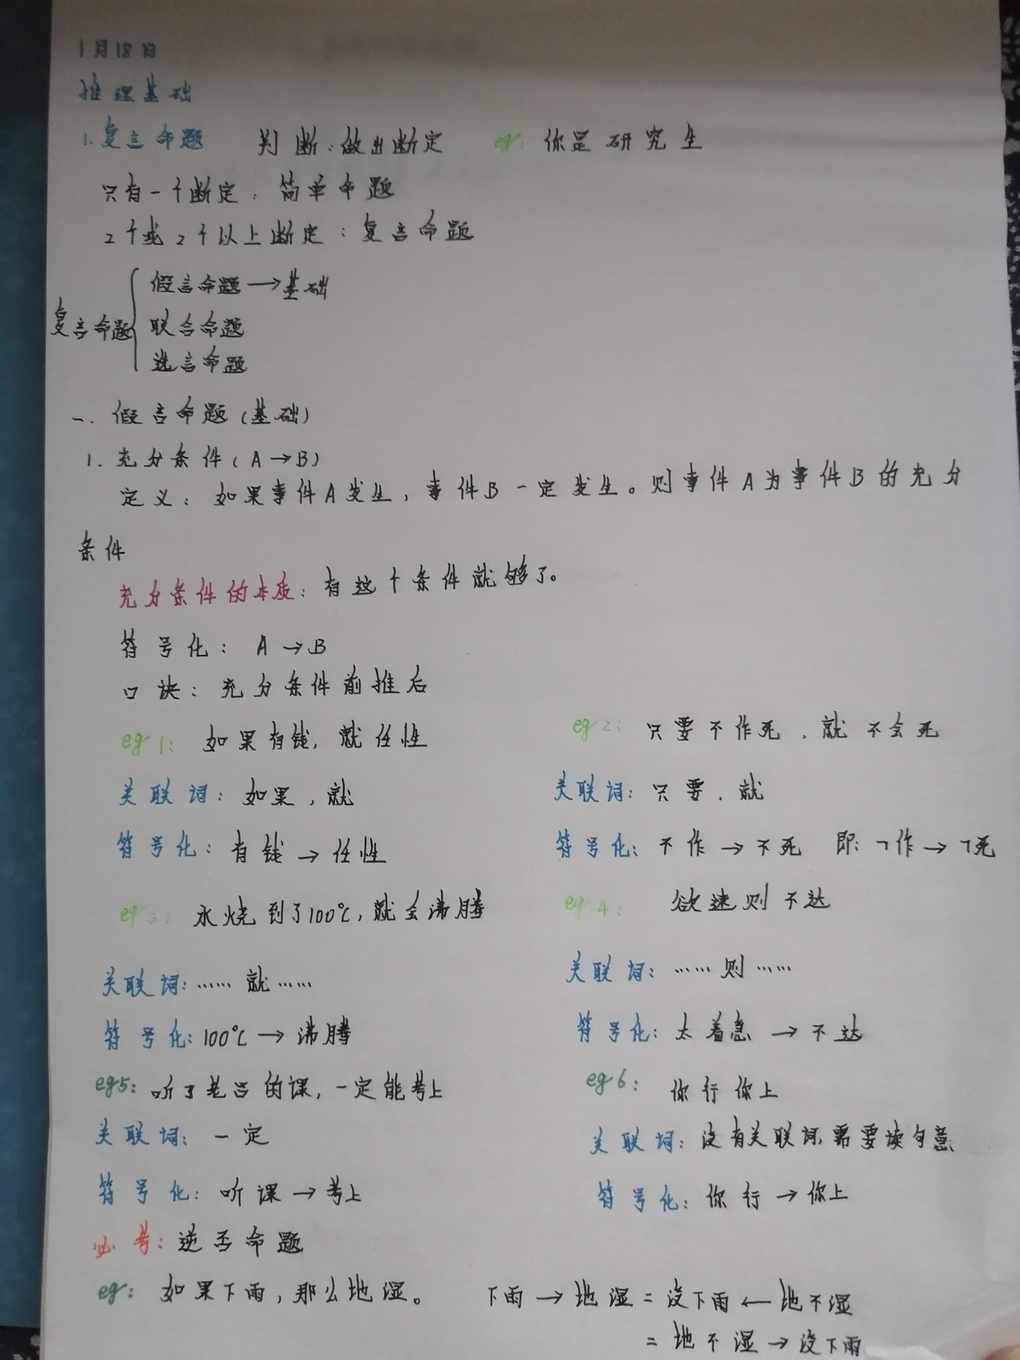 1月18日
推理基础
1.复言命题 判断:做出断定 eg: 你是研究生
只有一个断定:简单命题
2个或2个以上断定:复言命题
复言命题
假言命题→基础
联言命题
选言命题
一.假言命题(基础)
1.充分条件(A→B)
定义:如果事件A发生,事件B一定发生。则事件A为事件B的充分
条件
充分条件的本质:有这个条件就够了。
符号化:A→B
口诀:充分条件前推后
eg1: 如果有钱,就任性 eg2: 只要不作死,就不会死
关联词:如果,就 关联词:只要,就
符号化:有钱→任性 符号化:不作→不死 即:¬作→¬死
eg3: 水烧到了100℃,就会沸腾 eg4: 欲速则不达
关联词:……就…… 关联词:……则……
符号化:100℃→沸腾 符号化:太着急→不达
eg5:听了老吕的课,一定能考上 eg6: 你行你上
关联词:一定 关联词:没有关联词,需要读句意
符号化:听课→考上 符号化:你行→你上
必考:逆否命题
eg: 如果下雨,那么地湿。 下雨→地湿=没下雨←地不湿
=地不湿→没下雨